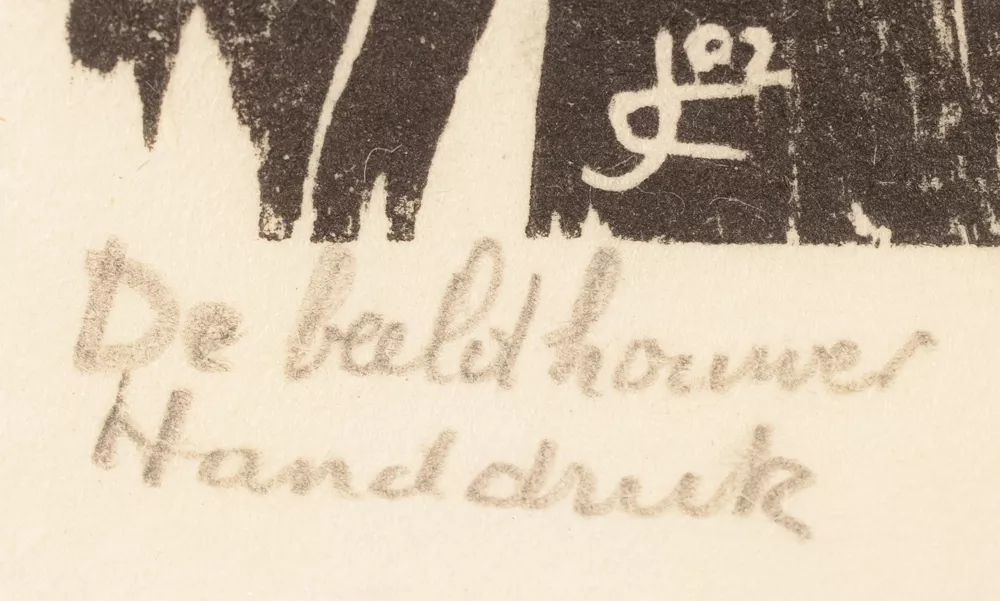 De beeldhouwer
Handdruk